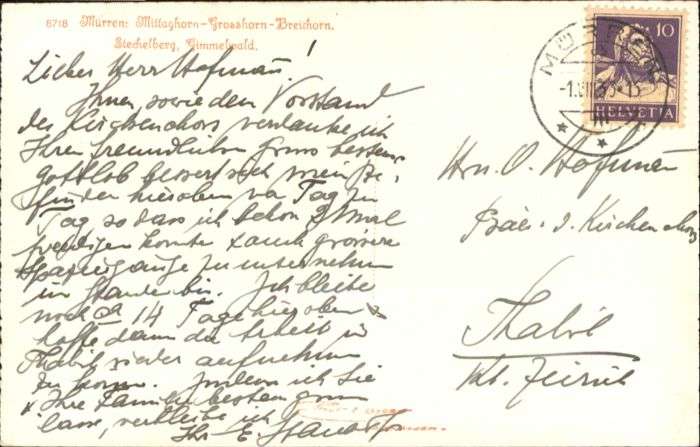 6718 Mürren: Mittaghorn-Grosshorn-Breithorn.
Stechelberg, Gimmelwald.
Lieber Herr Hofmann!
Ihnen, sowie dem Vorstand
des Kirchenchors verdanke ich
Ihren freundlichen Gruss bestens.
Gottlob bessert sich mein Be-
finden hieroben von Tag zu
Tag so dass ich schon 2 Mal
predigen konnte & auch grössere
Spaziergänge zu unternehmen
im Stande bin. Ich bleibe
noch ca 14 Tage hieroben &
hoffe dann die Arbeit in
Thalwil wieder aufnehmen
zu können. Indem ich Sie
& Ihre Familie bestens grüssen
lasse, verbleibe ich
Ihr E.
MÜRREN
-1.VIII.33-15
10
HELVETIA
Hrn. O. Hofmann
Präs. d. Kirchenchors
Thalwil
Kt. Zürich